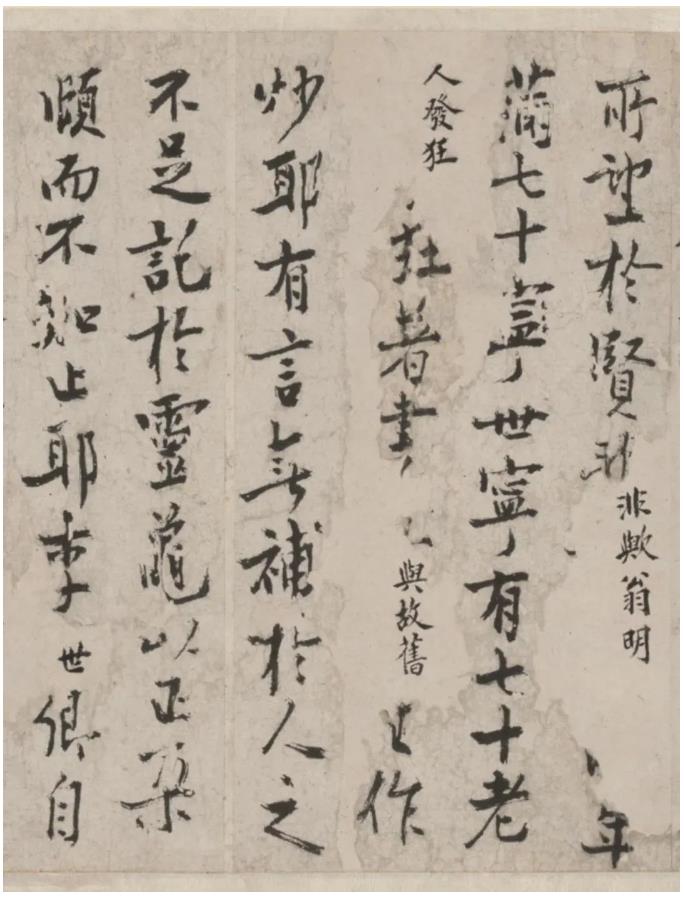 所望於賢非歟翁明年
滿七十寧世寧有七十老
人發狂狂著書與故舊作
炒耶有言無補於人之
不足記於靈龜以正朵
頤而不知止耶李世卿自